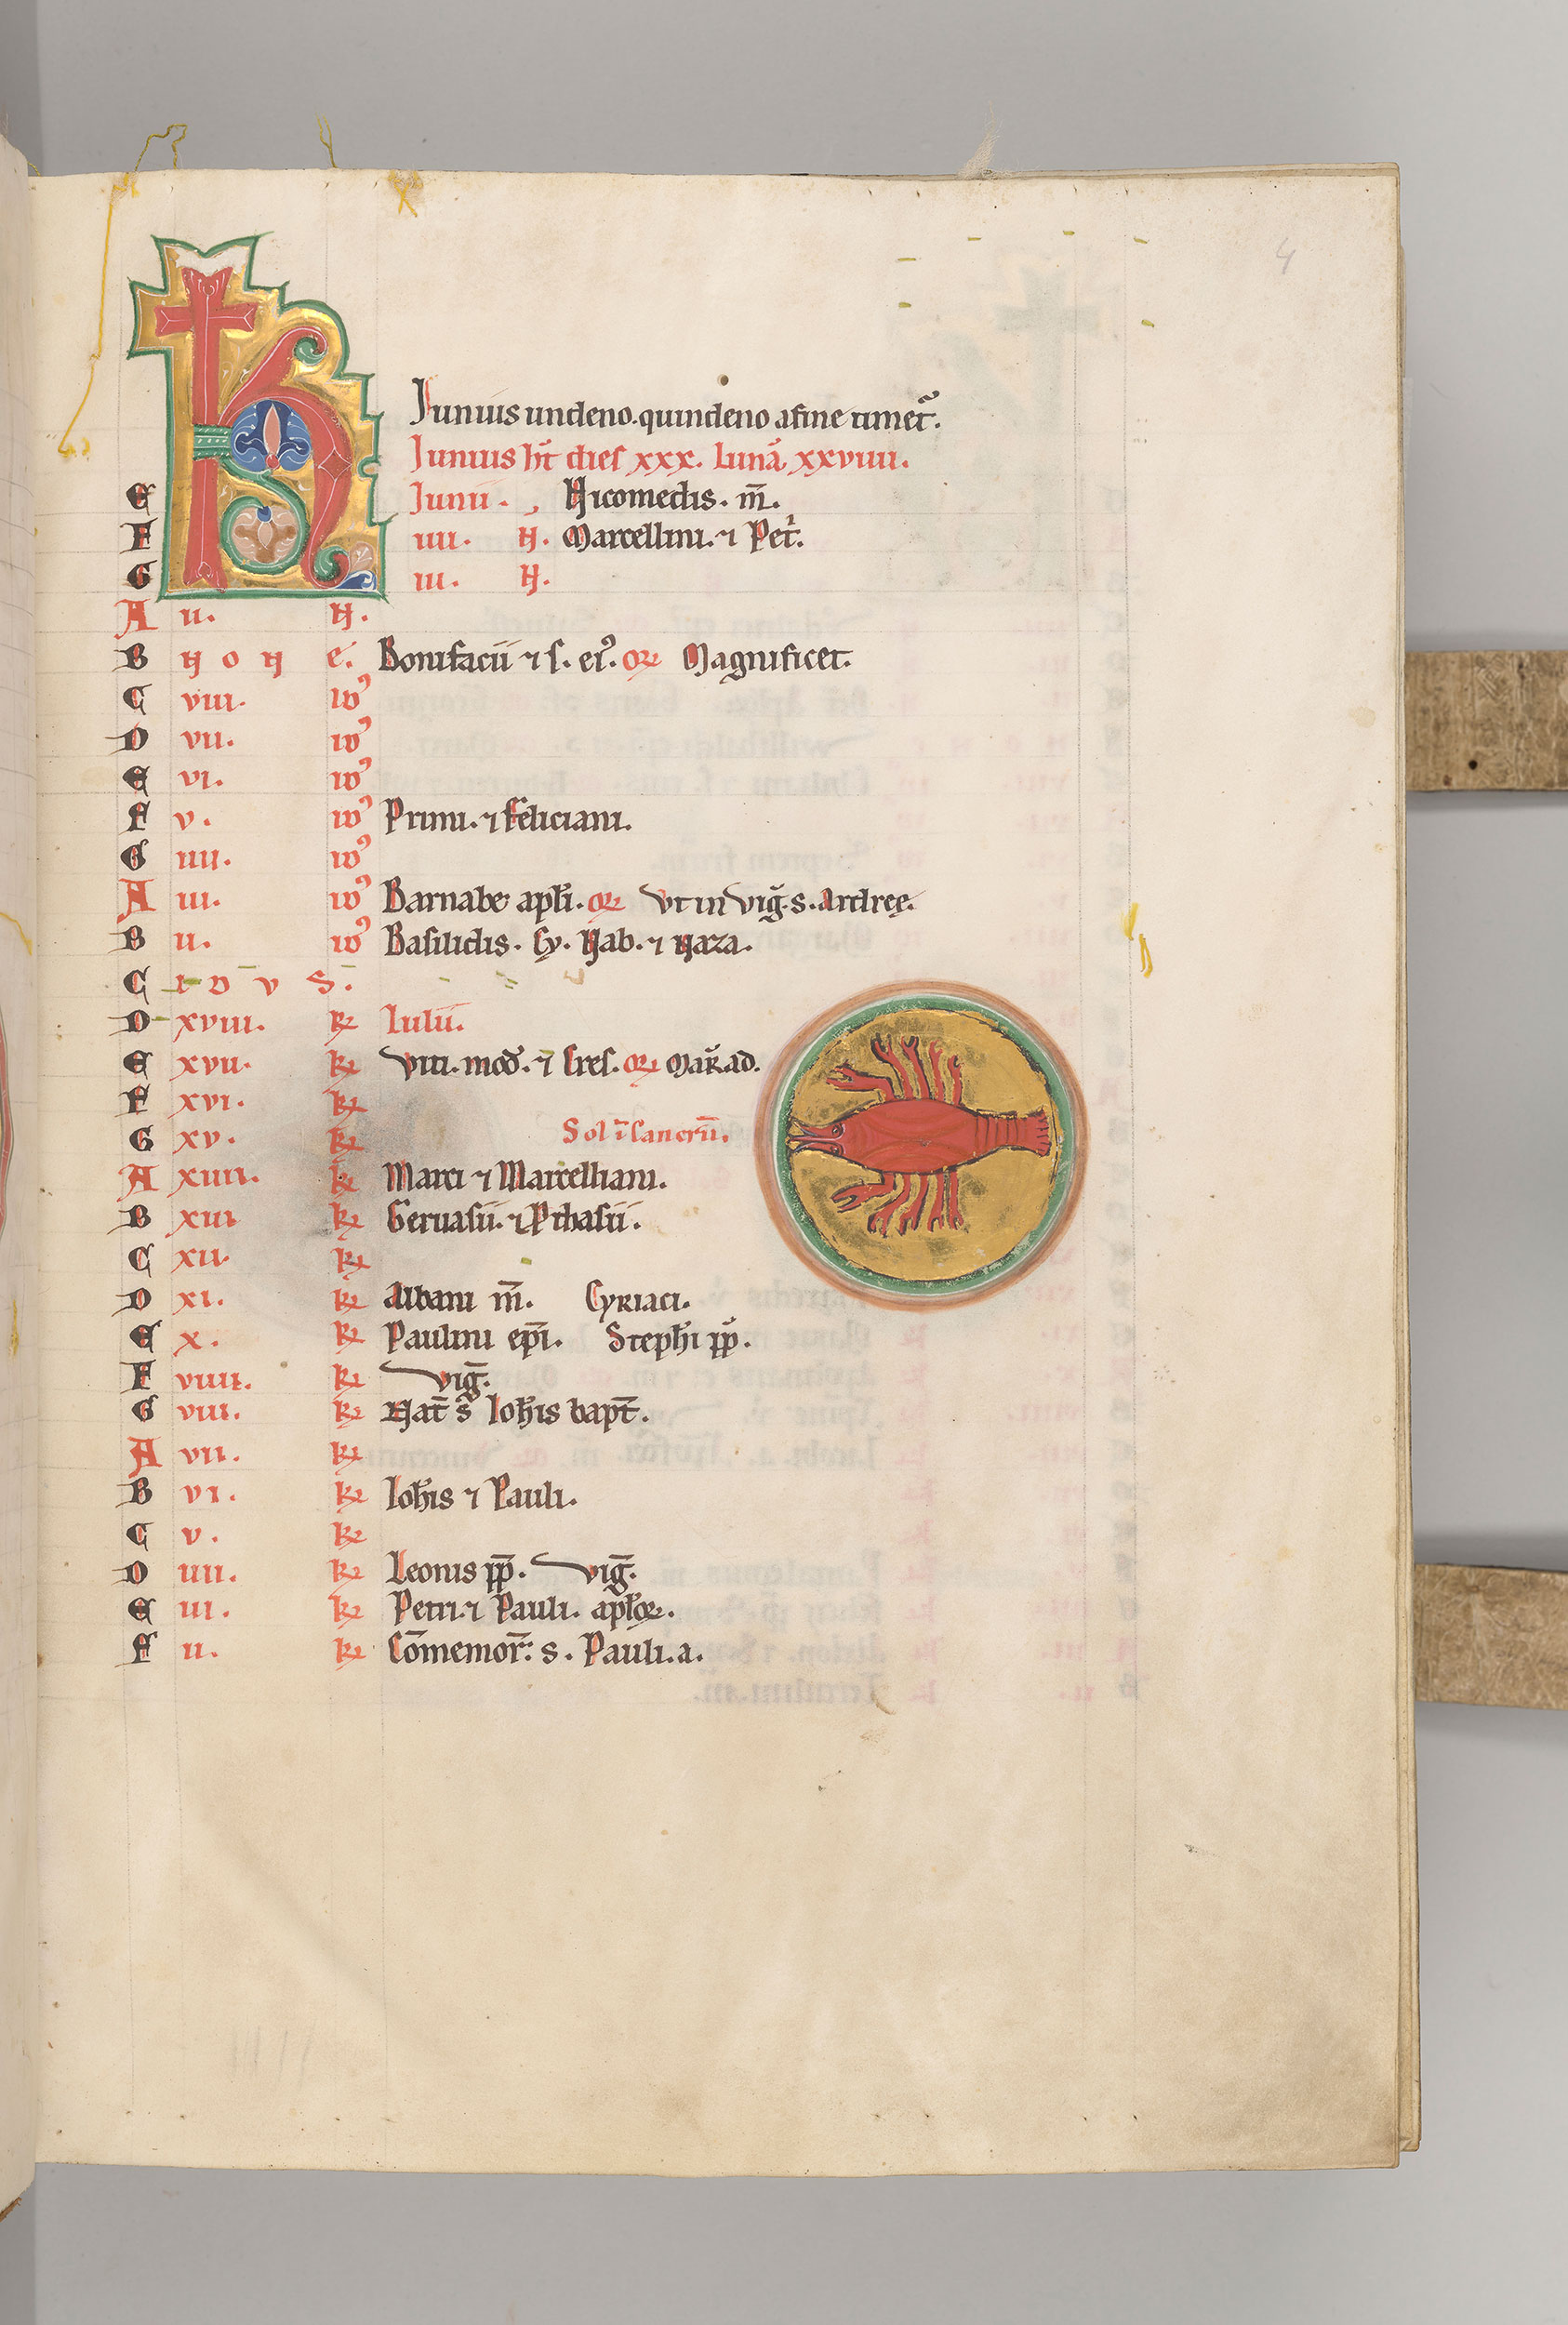 4
Junius undeno. quindeno a fine timet᷒.
Junius ht̄ dies xxx. Lunā xxviiii.
E Junii. Nicomedis. m̄.
F iiii. N. Marcellini. ⁊ Pet͛.
G iii. N.
A ii. N.
B N O N e. Bonifacii ⁊ s. ei᷒. oꝝ Magnificet.
C viii. id᷒
D vii. id᷒
E vi. id᷒
F v. id᷒ Primi. ⁊ Feliciani.
G iiii. id᷒
A iii. id᷒ Barnabe apłi. oꝝ Ut in viḡ. s. Andreę.
B ii. id᷒ Basilidis. Cy. Nab. ⁊ Naza.
C I D V S.
D xviii. kl Iulii.
E xvii. kl Viti. mod̄. ⁊ Cres. oꝝ
F xvi. kl
G xv. kl Sol ī Cancrū.
A xiiii. kl Marci ⁊ Marcelliani.
B xiii kl Geruasii. ⁊ Pthasii.
C xii kl
D xi. kl Albani m̄. Cyriaci.
E x. kl Paulini ep̄i. Stepħi pp̄.
F viiii. kl Viḡ.
G viii. kl Nat̄ s̄ Ioħis bapt̄.
A vii. kl
B vi. kl Ioħis ⁊ Pauli.
C v. kl
D iiii. kl Leonis pp̄. Viḡ.
E iii. kl Petri. ⁊ Pauli. apłoꝝ.
F ii. kl Cōmemor̄. s. Pauli. a.